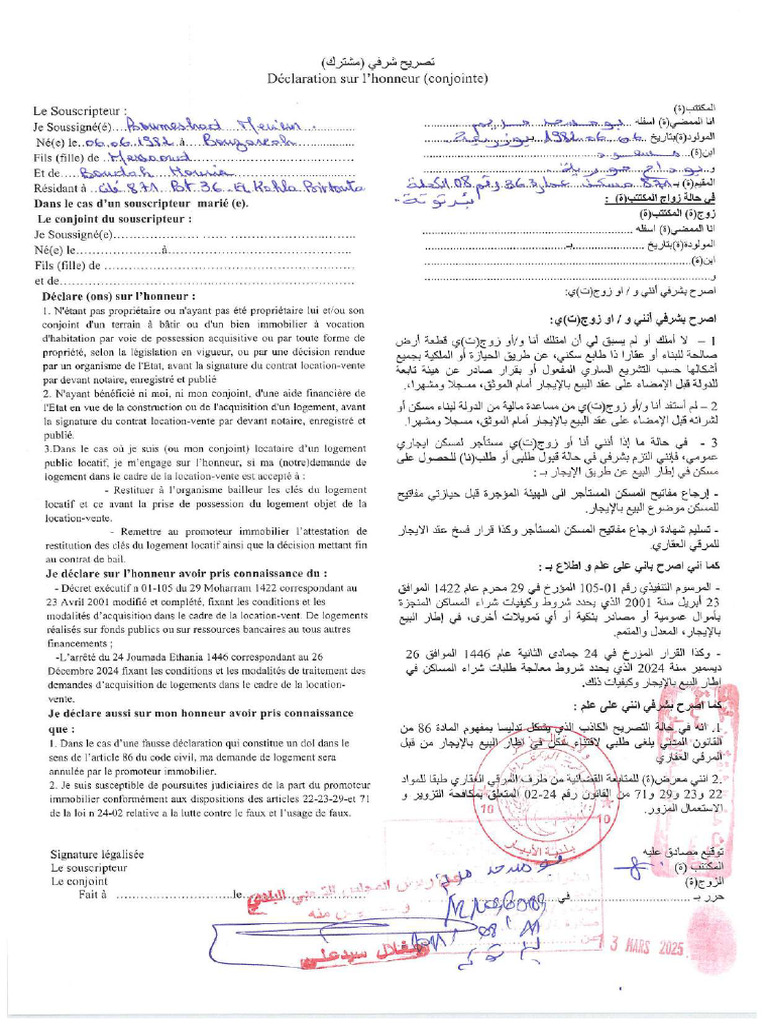 تصريح شرفي (مشترك)
Déclaration sur l'honneur (conjointe)
Le Souscripteur :
Je Soussigné(é)....Boumeshad Meriem
Né(e) le..06.06.1982 à ..Bouzareah
Fils (fille) de ..Messaoud
Et de ......Boudah Houria
Résidant à ..Cité 871 Bt 36 El Kahla Birtouta
Dans le cas d'un souscripteur marié (e).
Le conjoint du souscripteur :
Je Soussigné(e)
Né(e) le....................à
Fils (fille) de
et de
Déclare (ons) sur l'honneur :
1. N'étant pas propriétaire ou n'ayant pas été propriétaire lui et/ou son
conjoint d'un terrain à bâtir ou d'un bien immobilier à vocation
d'habitation par voie de possession acquisitive ou par toute forme de
propriété, selon la législation en vigueur, ou par une décision rendue
par un organisme de l'Etat, avant la signature du contrat location-vente
par devant notaire, enregistré et publié
2. N'ayant bénéficié ni moi, ni mon conjoint, d'une aide financière de
l'Etat en vue de la construction ou de l'acquisition d'un logement, avant
la signature du contrat location-vente par devant notaire, enregistré et
publié.
3.Dans le cas où je suis (ou mon conjoint) locataire d'un logement
public locatif, je m'engage sur l'honneur, si ma (notre)demande de
logement dans le cadre de la location-vente est accepté à :
- Restituer à l'organisme bailleur les clés du logement
locatif et ce avant la prise de possession du logement objet de la
location-vente.
- Remettre au promoteur immobilier l'attestation de
restitution des clés du logement locatif ainsi que la décision mettant fin
au contrat de bail.
Je déclare sur l'honneur avoir pris connaissance du :
- Décret exécutif n 01-105 du 29 Moharram 1422 correspondant au
23 Avril 2001 modifié et complété, fixant les conditions et les
modalités d'acquisition dans le cadre de la location-vent. De logements
réalisés sur fonds publics ou sur ressources bancaires au tous autres
financements ;
-L'arrêté du 24 Joumada Ethania 1446 correspondant au 26
Décembre 2024 fixant les conditions et les modalités de traitement des
demandes d'acquisition de logements dans le cadre de la location-
vente.
Je déclare aussi sur mon honneur avoir pris connaissance
que :
1. Dans le cas d'une fausse déclaration qui constitue un dol dans le
sens de l'article 86 du code civil, ma demande de logement sera
annulée par le promoteur immobilier.
2. Je suis susceptible de poursuites judiciaires de la part du promoteur
immobilier conformément aux dispositions des articles 22-23-29-et 71
de la loi n 24-02 relative a la lutte contre le faux et l'usage de faux.
Signature légalisée
Le souscripteur
Le conjoint
Fait à ........................le
المكتتب(ة)
انا الممضي(ة) اسفله
المولود(ة) بتاريخ ..06.06.1982 بوزريعة
ابن(ة) مسعود
و
المقيم(ة) بـ 871 مسكن عمارة 36 رقم 08 الكحلة
بئر توتة
في حالة زواج المكتتب(ة) :
زوج(ة) المكتتب(ة)
انا الممضي(ة) اسفله
المولودة(ة) بتاريخ ............ بـ
ابن(ة)
و
اصرح بشرفي أنني و / او زوج(ت)ي:
اصرح بشرفي أنني و / او زوج(ت)ي:
1 – لا أملك أو لم يسبق لي أن امتلك أنا و/أو زوج(ت)ي قطعة أرض
صالحة للبناء أو عقارا ذا طابع سكني، عن طريق الحيازة أو الملكية بجميع
أشكالها حسب التشريع الساري المفعول أو بقرار صادر عن هيئة تابعة
للدولة قبل الإمضاء على عقد البيع بالإيجار أمام الموثق، مسجلا ومشهرا.
2 – لم أستفد أنا و/أو زوج(ت)ي من مساعدة مالية من الدولة لبناء مسكن أو
لشرائه قبل الإمضاء على عقد البيع بالإيجار أمام الموثق، مسجلا ومشهرا.
3 - في حالة ما إذا أنني أنا أو زوج(ت)ي مستأجر لمسكن ايجاري
عمومي، فإنني التزم بشرفي في حالة قبول طلبي أو طلب(نا) للحصول على
مسكن في إطار البيع عن طريق الإيجار بـ :
- إرجاع مفاتيح المسكن المستأجر الى الهيئة المؤجرة قبل حيازتي مفاتيح
للمسكن موضوع البيع بالإيجار.
- تسليم شهادة ارجاع مفاتيح المسكن المستأجر وكذا قرار فسخ عقد الايجار
للمرقي العقاري.
كما انى اصرح باني على علم و اطلاع بـ :
- المرسوم التنفيذي رقم 01-105 المؤرخ في 29 محرم عام 1422 الموافق
23 أبريل سنة 2001 الذي يحدد شروط وكيفيات شراء المساكن المنجزة
بأموال عمومية أو مصادر بنكية أو أي تمويلات أخرى، في إطار البيع
بالإيجار، المعدل والمتمم.
- وكذا القرار المؤرخ في 24 جمادى الثانية عام 1446 الموافق 26
ديسمبر سنة 2024 الذي يحدد شروط معالجة طلبات شراء المساكن في
إطار البيع بالإيجار وكيفيات ذلك.
كما اصرح بشرفي انني على علم :
1. انه في حالة التصريح الكاذب الذي يشكل تدليسا بمفهوم المادة 86 من
القانون المدني يلغى طلبي لاقتناء سكن في إطار البيع بالإيجار من قبل
المرقي العقاري
2. انني معرض(ة) للمتابعة القضائية من طرف المرقي العقاري طبقا للمواد
22 و23 و29 و71 من القانون رقم 24-02 المتعلق بمكافحة التزوير و
الاستعمال المزور.
توقيع مصادق عليه
المكتتب (ة)
الزوج(ة)
حرر بـ ............ في
بلدية الأبيار
10
10
رئيس المجلس الشعبي البلدي
سيدعلي
13 MARS 2025